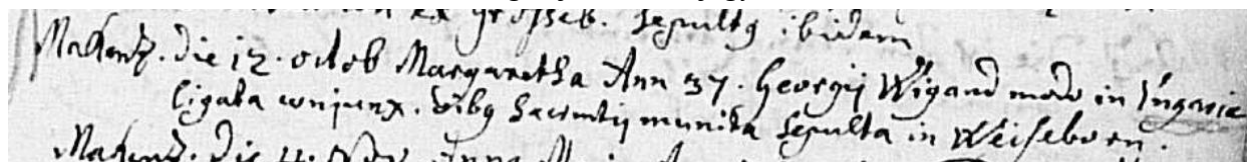 ex Grosseb. sepultg ibidem
Makenz. die 12. octob Margaretha Ann 37. Georgij Wigand modo in Ungaria
ligata conjunx. oibg Sacrmtis munita sepulta in Weiseborn.
Makenz. Die 4. Nov. Anna